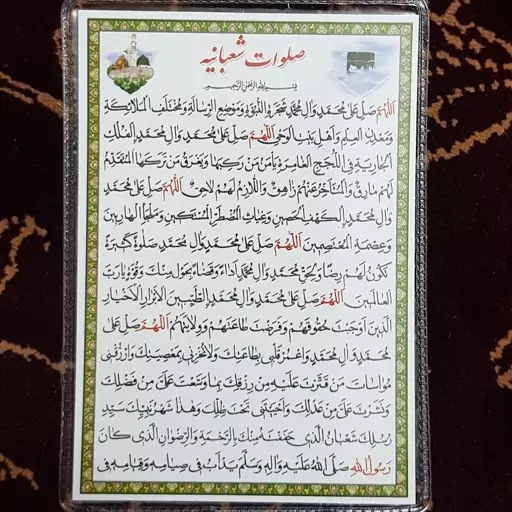 صلوات شعبانیه
بِسْمِ اللهِ الرَّحْمٰنِ الرَّحیمِ
اَللّٰهُمَّ صَلِّ عَلیٰ مُحَمَّدٍ وَالِ مُحَمَّدٍ شَجَرَةِ النُّبُوَّةِ وَمَوْضِعِ الرِّسالَةِ وَمُخْتَلَفِ الْمَلائِكَةِ
وَمَعْدِنِ الْعِلْمِ وَاَهْلِ بَيْتِ الْوَحْیِ اَللّٰهُمَّ صَلِّ عَلیٰ مُحَمَّدٍ وَالِ مُحَمَّدٍ الْفُلْكِ
الْجارِيَةِ فِی اللُّجَجِ الْغامِرَةِ يَأْمَنُ مَنْ رَكِبَها وَيَغْرَقُ مَنْ تَرَكَهَا الْمُتَقَدِّمُ
لَهُمْ مارِقٌ وَالْمُتَاَخِّرُ عَنْهُمْ زاهِقٌ وَاللّازِمُ لَهُمْ لاحِقٌ اَللّٰهُمَّ صَلِّ عَلیٰ مُحَمَّدٍ
وَالِ مُحَمَّدٍ الْكَهْفِ الْحَصینِ وَغِیاثِ الْمُضْطَرِّ الْمُسْتَكینِ وَمَلْجَاِ الْهارِبینَ
وَعِصْمَةِ الْمُعْتَصِمینَ اَللّٰهُمَّ صَلِّ عَلیٰ مُحَمَّدٍ وَالِ مُحَمَّدٍ صَلٰوةً كَثیرَةً
تَكُونُ لَهُمْ رِضًا وَلِحَقِّ مُحَمَّدٍ وَالِ مُحَمَّدٍ اَداءً وَقَضاءً بِحَوْلٍ مِنْكَ وَقُوَّةٍ يا رَبَّ
الْعالَمینَ اَللّٰهُمَّ صَلِّ عَلیٰ مُحَمَّدٍ وَالِ مُحَمَّدٍ الطَّیِّبینَ الْاَبْرارِ الْاَخْیارِ
الَّذینَ اَوْجَبْتَ حُقُوقَهُمْ وَفَرَضْتَ طاعَتَهُمْ وَوِلايَتَهُمْ اَللّٰهُمَّ صَلِّ عَلیٰ
مُحَمَّدٍ وَالِ مُحَمَّدٍ وَاعْمُرْ قَلْبی بِطاعَتِكَ وَلاتُخْزِنی بِمَعْصِیَتِكَ وَارْزُقْنی
مُواساةَ مَنْ قَتَّرْتَ عَلَيْهِ مِنْ رِزْقِكَ بِما وَسَّعْتَ عَلَیَّ مِنْ فَضْلِكَ
وَنَشَرْتَ عَلَیَّ مِنْ عَدْلِكَ وَاَحْیَیْتَنی تَحْتَ ظِلِّكَ وَهٰذا شَهْرُ نَبِیِّكَ سَیِّدِ
رُسُلِكَ شَعْبانُ الَّذی حَفَفْتَهُ مِنْكَ بِالرَّحْمَةِ وَالرِّضْوانِ الَّذی كانَ
رَسُولُ اللهِ صَلَّی اللهُ عَلَيْهِ وَالِهِ وَسَلَّمَ يَدْاَبُ فی صِیامِهِ وَقِیامِهِ فی